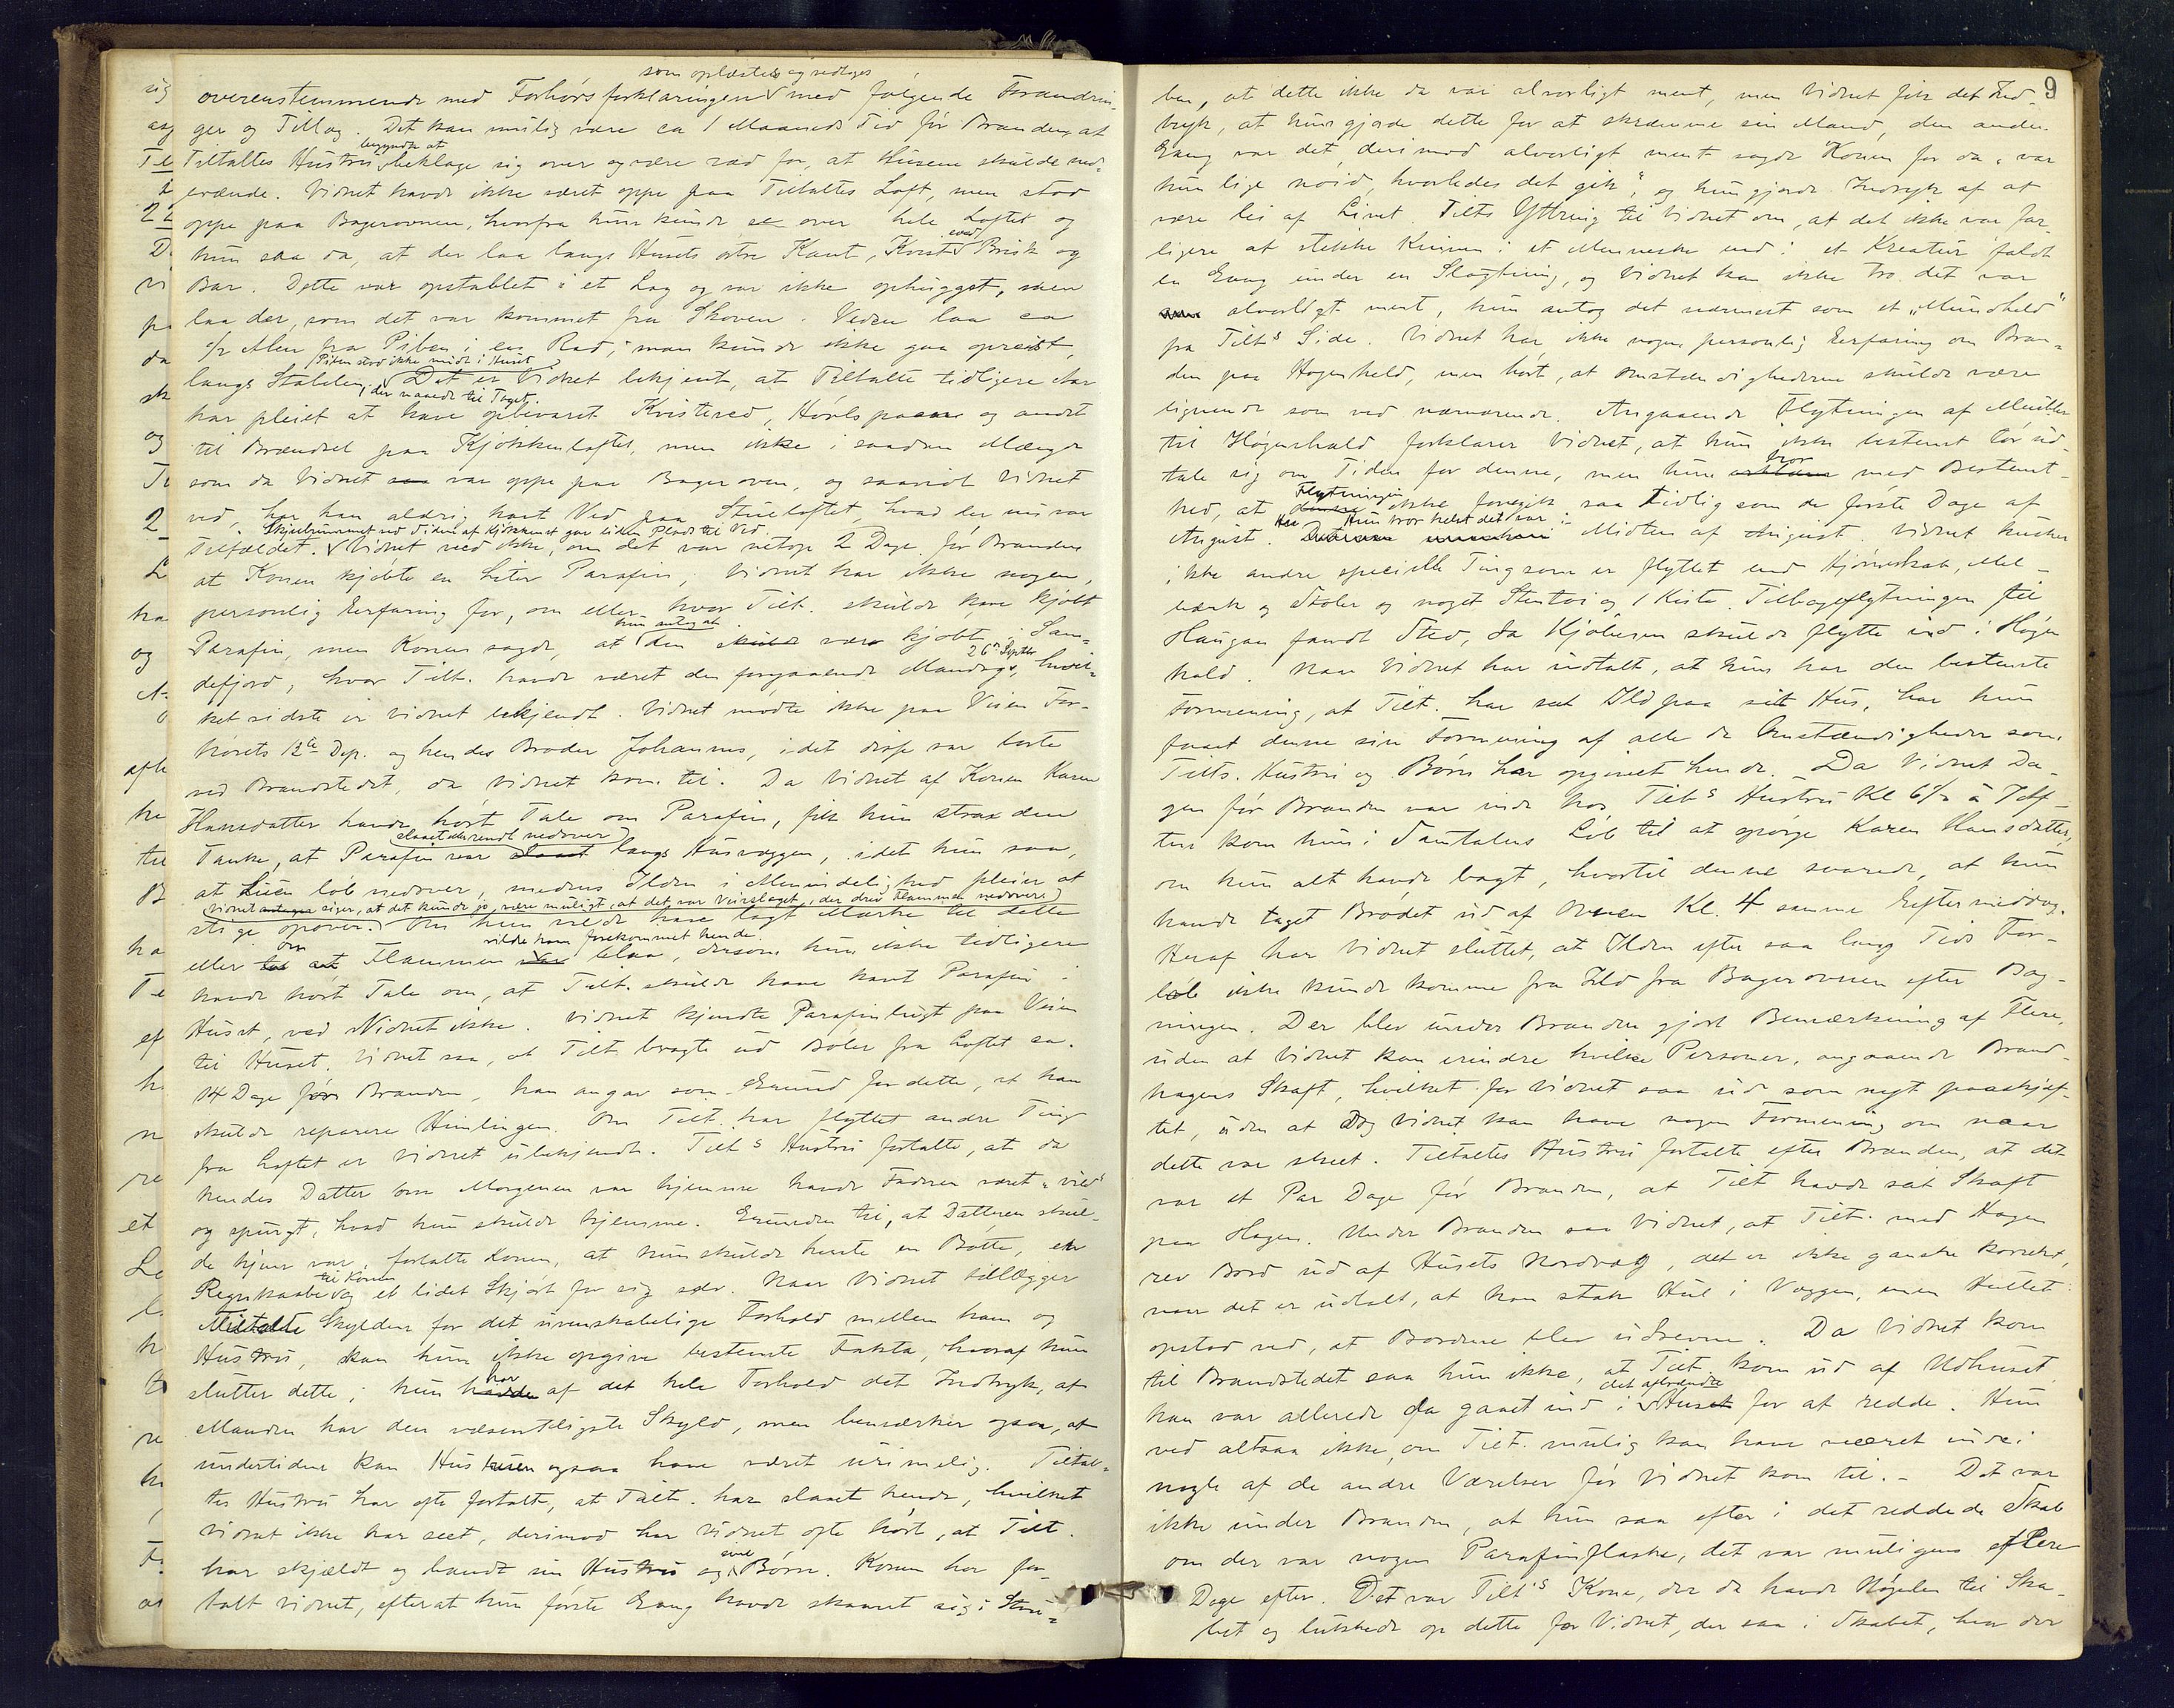 som oplæstes og vedtoges
overensstemmende med Forhørsforklaringen med følgende Forandrin-
ger og Tillæg. Det kan mulig være ca 1 Maaneds Tid før Branden, at
begyndte at
Tiltaltes Hustru beklage sig over og være ræd for, at Husene skulde ned-
brænde. Vidnet havde ikke været oppe paa Tiltaltes Loft, men stod
oppe paa Bagerovnen, hvorfra hun kunde se over hele Loftet og
hun saa da, at der laa langs Husets østre Kant, Kvistved Brisk og
Bar. Dette var opstablet i et Lag og var ikke ophugget, men
laa der, som det var kommet fra Skoven. Veden laa ca
1/2 Alen fra Piben i en Rad, man kunde ikke gaa opreist,
Piben stod ikke midt i Huset
langs Stabelen, Det er Vidnet bekjent, at Tiltalte tidligere Aar
der naaede til Taget.
har pleiet at have opbevaret Kvistved, Høvlspaaner og andet
til Brændsel paa Kjøkkenloftet, men ikke i saadan Mængde
som da Vidnet var oppe paa Bagerovnen, og saavidt Vidnet
ved, har han aldrig havt Ved paa Stueloftet, hvad der nu var
Skjulrummet ved Siden af Kjøkkenet gav liden Plads til Ved.
Tilfældet. Vidnet ved ikke, om det var netop 2 Dage før Branden
at Konen kjøbte en Liter Parafin; Vidnet har ikke nogen
personlig Erfaring for, om eller hvor Tilt. skulde have kjøbt
hun antog at
Parafin, men Konen sagde, at den skulde være kjøbt i San-
26de Septbr
defjord, hvor Tilt. havde været den foregaaende Mandag, hvil-
ket sidste er Vidnet bekjendt. Vidnet mødte ikke paa Veien For-
hørets 12te Dep. og hendes Broder Johannes, idet disse var borte
ved Brandstedet, da Vidnet kom til. Da Vidnet af Konen Karen
Hansdatter havde hørt Tale om Parafin, fik hun strax den
slaaet eller rendt nedover
Tanke, at Parafin var langs Husvæggen, idet hun saa,
at Luen løb nedover, medens Ilden i Almindelighed pleier at
vidnet siger, at det kunde jo være muligt, at det var Veirslaget, der drev Flammen nedover
stige opover. Om hun vilde have lagt Mærke til dette
om vilde have forekommet hende
eller Flammen blaa, dersom hun ikke tidligere
havde hørt Tale om, at Tilt. skulde have havt Parafin i
Huset, ved Vidnet ikke. Vidnet kjendte Parafinlugt paa Veien
til Huset. Vidnet saa, at Tilt. bragte ud Bøler fra Loftet ca.
14 Dage før Branden, han angav som Grund for dette, at han
skulde reparere Himlingen. Om Tilt. har flyttet andre Ting
fra Loftet er Vidnet ubekjendt. Tilts Hustru fortalte, at da
hendes Datter om Morgenen var hjemme havde Faderen været "vred"
og spurgt, hvad hun skulde hjemme. Grunden til, at Datteren skul-
de hjem var, fortalte Konen, at hun skulde hente en Bøtte, en
til Konen
Regnkaabe og et lidet Skjørt for sig selv. Naar Vidnet tillægger
Tiltalte Skylden for det uvenskabelige Forhold mellem ham og
Hustru, kan hun ikke opgive bestemte Fakta, hvoraf hun
har
slutter dette; hun havde af det hele Forhold det Indtryk, at
Manden har den væsentligste Skyld, men bemærker ogsaa, at
undertiden kan Hustruen ogsaa have været urimelig. Tiltal-
tes Hustru har ofte fortalt, at Tilt. har slaaet hende, hvilket
Vidnet ikke har seet, derimod har Vidnet ofte hørt, at Tilt.
sine
har skjældt og bandt sin Hustru og Børn. Konen har for-
talt Vidnet, efterat hun første Gang havde skaaret sig i Stru-
9
ben, at dette ikke da var alvorligt ment, men Vidnet fik det Ind-
tryk, at hun gjorde dette for at skræmme sin Mand, den anden
Gang var det derimod alvorligt ment sagde Konen for da "var
hun lige nøid, hvorledes det gik", og hun gjorde Indtryk af at
være lei af Livet. Tilts Yttring til Vidnet om, at det ikke var far-
ligere at stikke Kniven i et Menneske end i et Kreatur faldt
en Gang under en Slagtning, og Vidnet kan ikke tro det var
alvorligt ment, hun antog det nærmest som et "Mundheld"
fra Tilts Side. Vidnet har ikke nogen personlig Erfaring om Bran-
den paa Høgenhald, men hørt, at Omstændighederne skulde være
lignende som ved nærværende. Angaaende Flytningen af Møibler
til Høgenhald forklarer Vidnet, at hun ikke bestemt tør ud-
tror
tale sig om Tiden for denne, men hun med Bestemt-
Flytningen
hed, at denne ikke foregik saa tidlig som de første Dage af
Hun tror helst det var i
August. Midten af August. Vidnet husker
ikke andre specielle Ting som er flyttet end Hjørneskab, Mel-
bænk og Stoler og noget Stentøi og 1 Kiste. Tilbageflytningen til
Haugan fandt Sted, da Kjøberen skulde flytte ind i Høgen
hald. Naar Vidnet har udtalt, at hun har den bestemte
Formening, at Tilt. har sat Ild paa sit Hus, har hun
faaet denne sin Formening af alle de Omstændigheder som
Tilts. Hustru og Børn har opgivet hende. Da Vidnet Da-
gen før Branden var inde hos Tilts Hustru Kl 6 1/2 à 7 Ef-
ten kom hun i Samtalens Løb til at spørge Karen Hansdatter,
om hun alt havde bagt, hvortil denne svarede, at hun
havde taget Brødet ud af Ovnen Kl. 4 samme Eftermiddag.
Heraf har Vidnet sluttet, at Ilden efter saa lang Tids For-
løb ikke kunde komme fra Ild fra Bagerovnen efter Bag-
ningen. Der blev under Branden gjort Bemærkning af Flere,
uden at Vidnet kan erindre hvilke Personer, angaaende Brand-
hagens Skaft, hvilket for Vidnet saa ud som nyt paaskjæf-
tet, uden at dog Vidnet kan have nogen Formening om naar
dette var skeet. Tiltaltes Hustru fortalte efter Branden, at det
var et Par Dage før Branden, at Tilt havde sat Skaft
paa Hagen. Under Branden saa Vidnet, at Tilt. med Hagen
rev Bord ud af Husets Nordvæg, det er ikke ganske korrekt,
naar det er udtalt, at han stak Hul i Væggen, men Hullet
opstod ved, at Bordene blev udrevne. Da Vidnet kom
til Brandstedet saa hun ikke, at Tilt. kom ud af Udhuset,
det afbrændte
han var allerede da gaaet ind i Huset for at redde. Hun
ved altsaa ikke, om Tilt. mulig kan have været inde i
nogle af de andre Værelser før Vidnet kom til. - Det var
ikke under Branden, at hun saa efter i det reddede Skab
om der var nogen Parafinflaske, det var muligens flere
Dage efter. Det var Tilt's Kone, der da havde Nøgelen til Ska-
bet og lukkede op dette for Vidnet, der saa i Skabet, hvor der